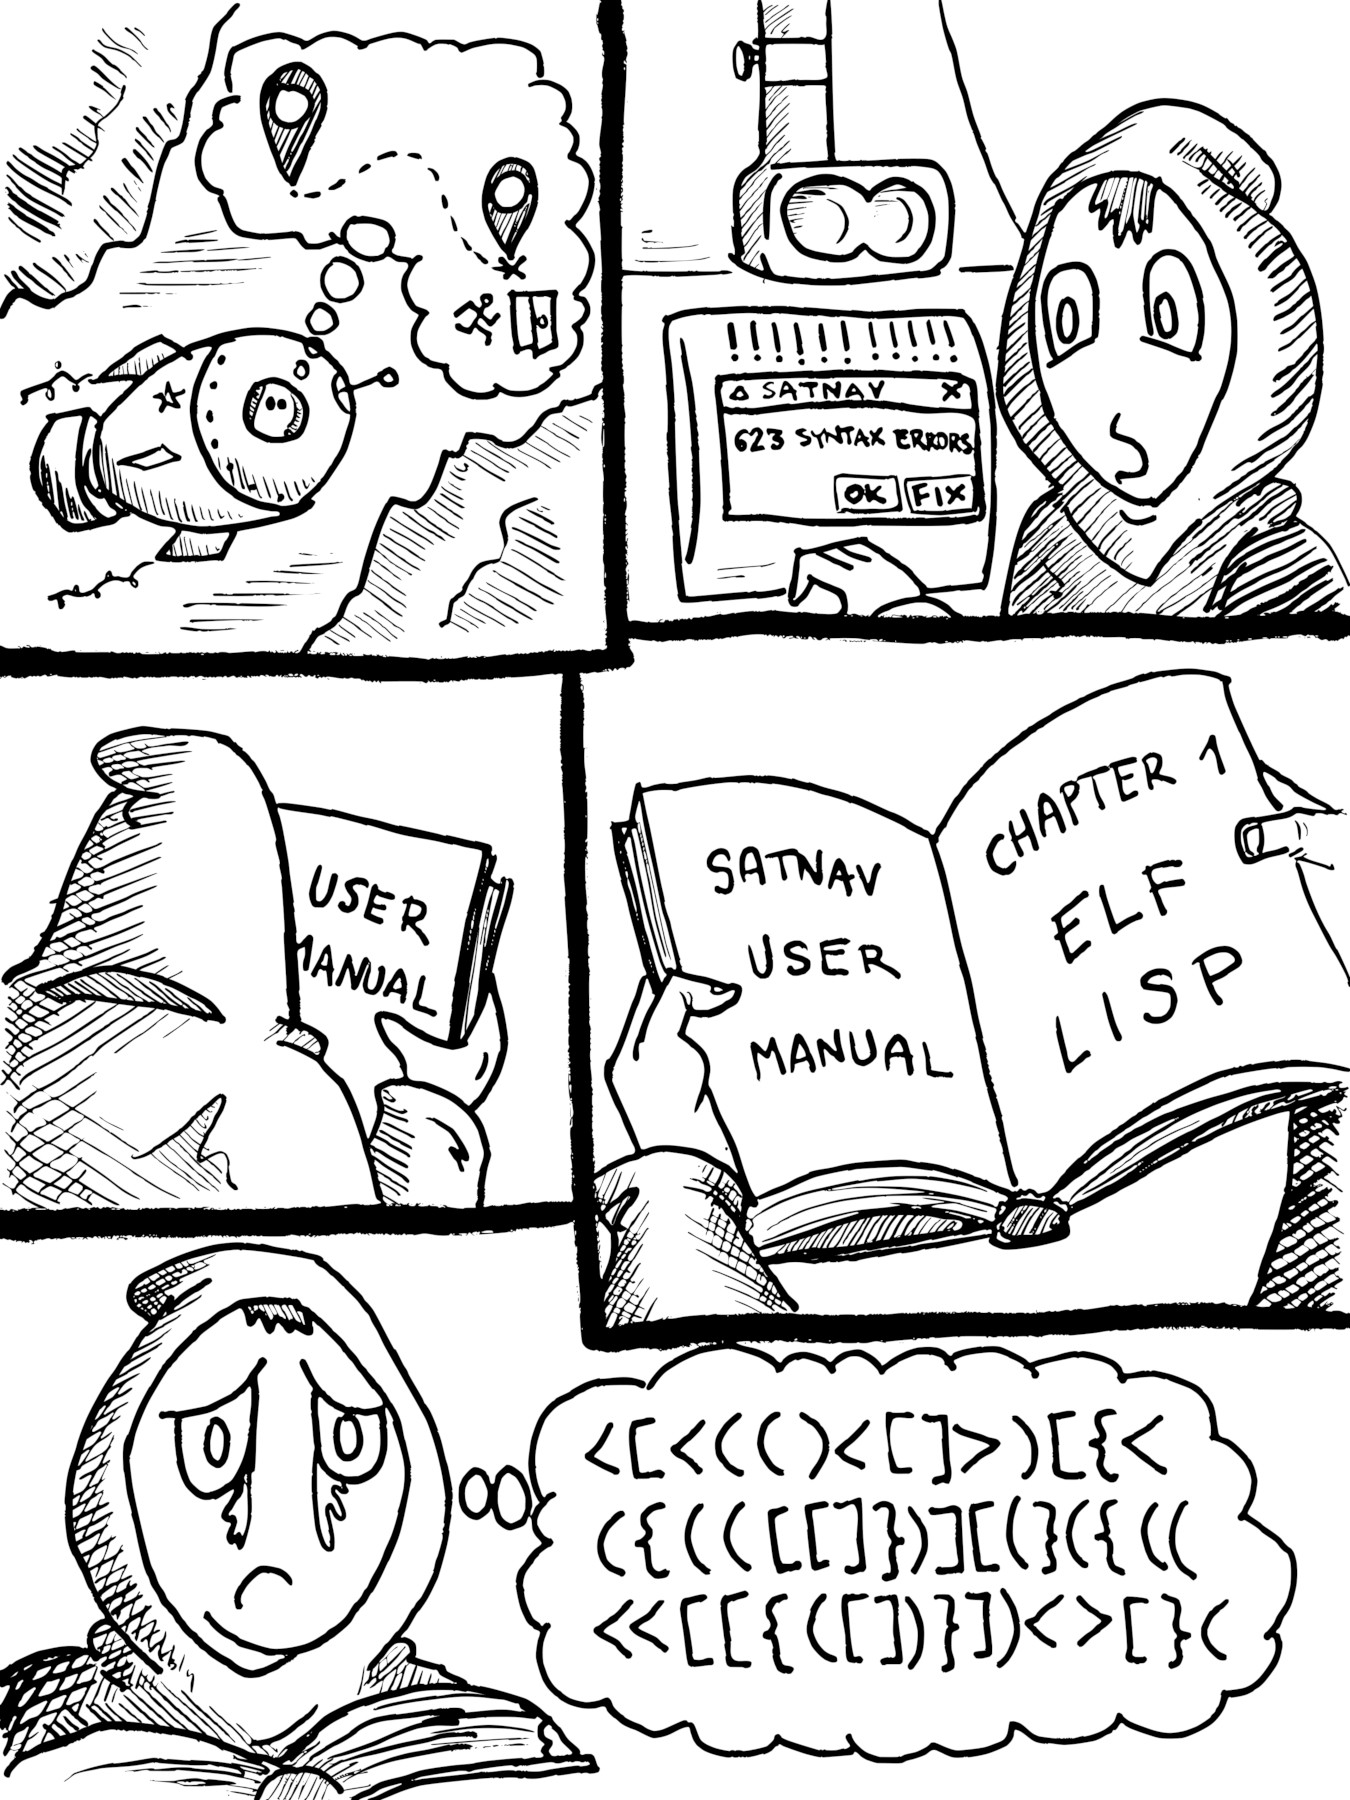 !!!!!!!!!!!
SATNAV X
623 SYNTAX ERRORS
OK FIX
USER
MANUAL
SATNAV
USER
MANUAL
CHAPTER 1
ELF
LISP
<[<(()<[]>)[{<
({(([[]})][(}({((
<<[[{([])}])<>[}(